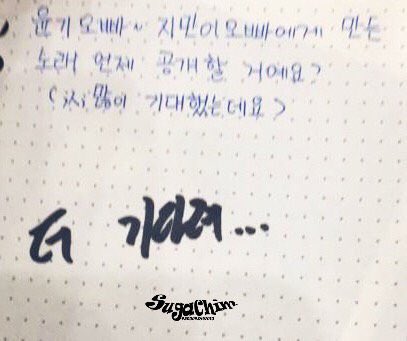 윤기오빠~ 지민이오빠에게 만든
노래 언제 공개할 거예요?
(많이 기대했는데요)
더 기다려...
SugaChim